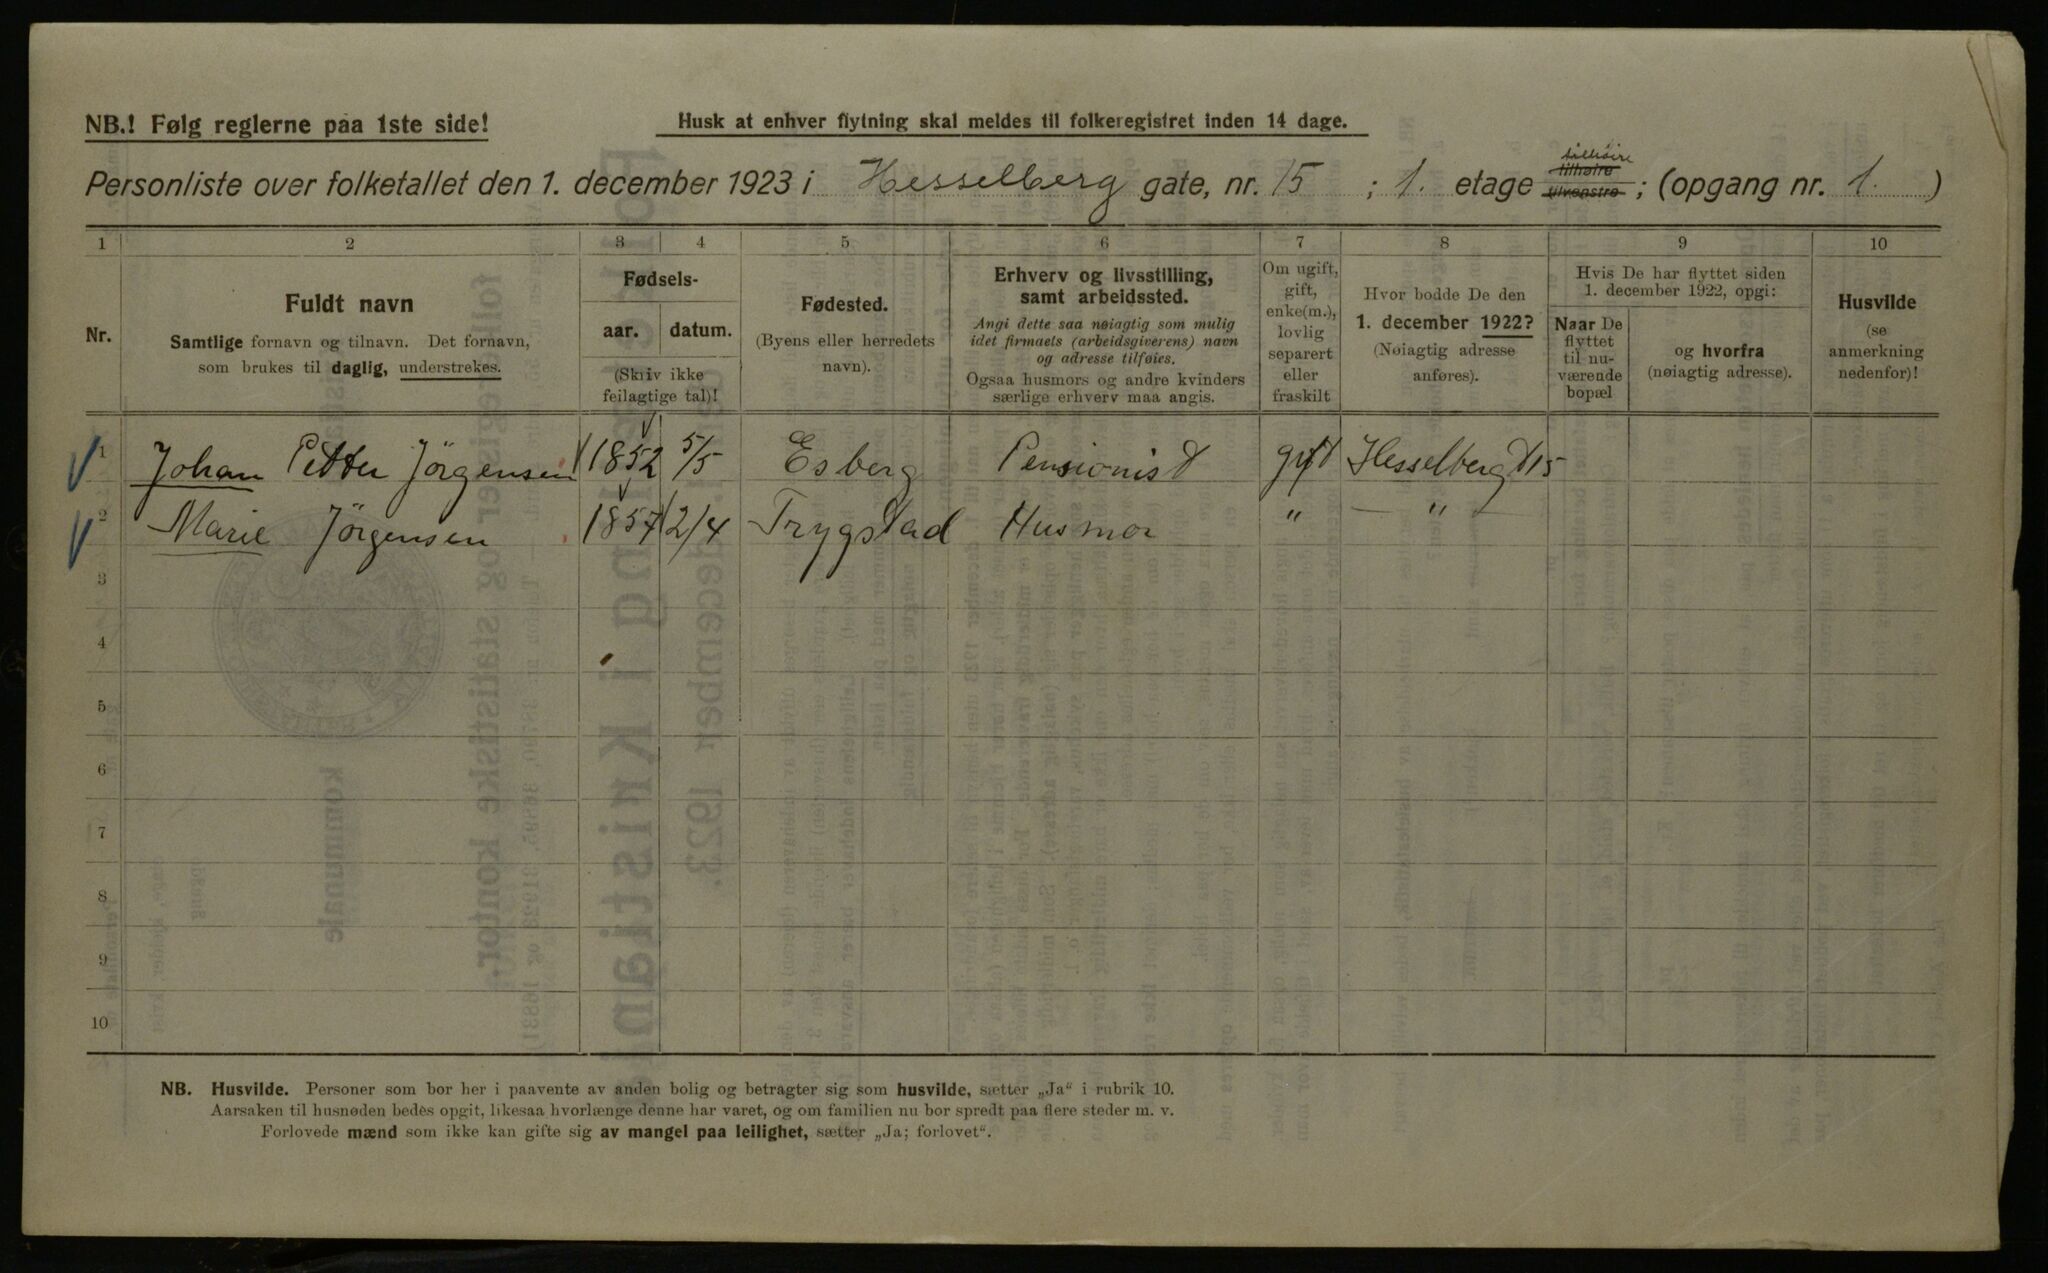 NB.! Følg reglerne paa 1ste side!
Husk at enhver flytning skal meldes til folkeregistret inden 14 dage.
Personliste over folketallet den 1. december 1923 i Hesselberg gate, nr. 15 ; 1. etage tilhøire tilhøire tilvenstre ; (opgang nr. 1. )
1 2 3 4 5 6 7 8 9 10
Nr.
Fuldt navn
Samtlige fornavn og tilnavn. Det fornavn,
som brukes til daglig, understrekes.
Fødsels-
aar. datum.
(Skriv ikke
feilagtige tal)!
Fødested.
(Byens eller herredets
navn).
Erhverv og livsstilling,
samt arbeidssted.
Angi dette saa nøiagtig som mulig
idet firmaets (arbeidsgiverens) navn
og adresse tilføies.
Ogsaa husmors og andre kvinders
særlige erhverv maa angis.
Om ugift,
gift,
enke(m.),
lovlig
separert
eller
fraskilt
Hvor bodde De den
1. december 1922?
(Nøiagtig adresse
anføres).
Hvis De har flyttet siden
1. december 1922, opgi:
Naar De
flyttet
til nu-
værende
bopæl
og hvorfra
(nøiagtig adresse).
Husvilde
(se
anmerkning
nedenfor)!
1 Johan Petter Jörgensen 1852 5/5 Esberg Pensionist gift Hesselbergt 15
2 Marie Jörgensen 1857 2/4 Trygstad Husmor " — " —
3
4
5
6
7
8
9
10
NB. Husvilde. Personer som bor her i paavente av anden bolig og betragter sig som husvilde, sætter „Ja“ i rubrik 10.
Aarsaken til husnøden bedes opgit, likesaa hvorlænge denne har varet, og om familien nu bor spredt paa flere steder m. v.
Forlovede mænd som ikke kan gifte sig av mangel paa leilighet, sætter „Ja; forlovet“.